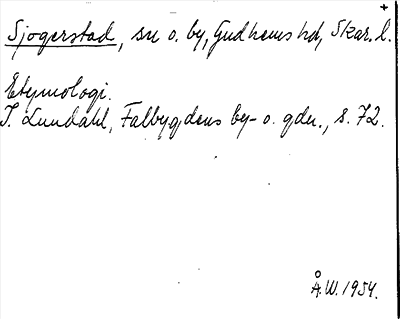 +
Sjogerstad, sn o. by, Gudhems hd, Skar. l.
Etymologi.
I. Lundahl, Falbygdens by- o. gdn., s. 72.
Å.W. 1954.